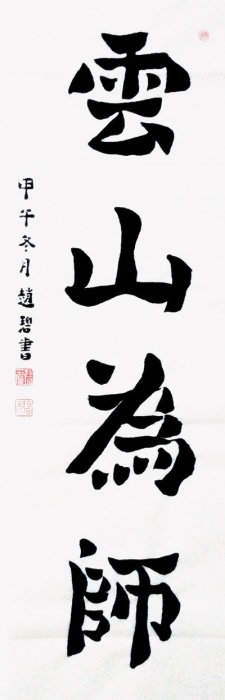 雲山為師
甲午冬月趙碧書